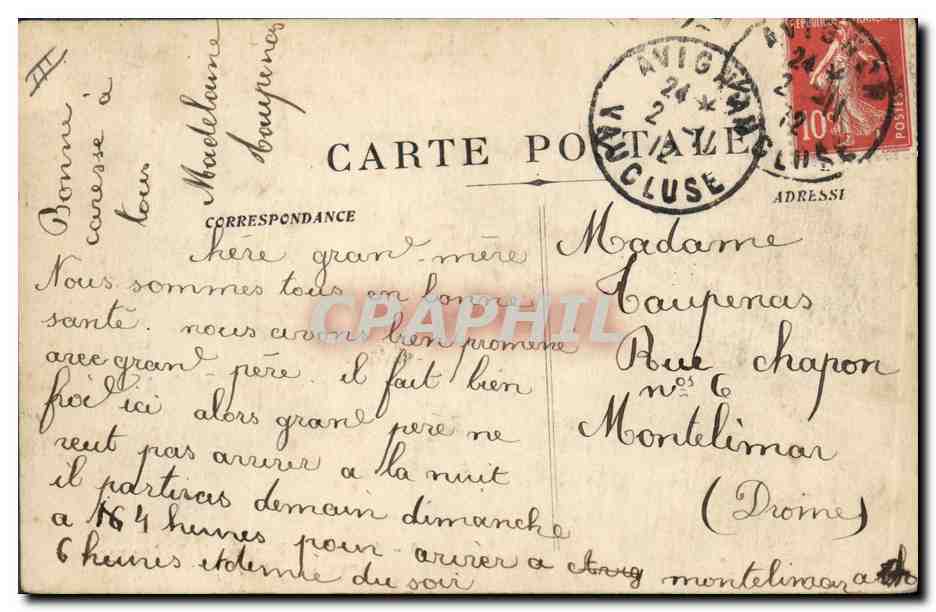 III
CARTE POSTALE
CORRESPONDANCE
ADRESSE
AVIGNON
24 *
2
VAUCLUSE
AVIGNON
24
2
12
VAUCLUSE
10c
POSTES
hère grand-mère
Nous sommes tous en bonne
santé. nous avons bien promené
avec grand-père. il fait bien
froi ici alors grand père ne
veut pas arriver a la nuit
il partiras demain dimanche
a 4 heures pour arriver a montelimar a
6 heures et demie du soir
Bonne
caresse à
tous
Madelaine
Taupenas
Madame
Taupenas
Rue chapon
nos 6
Montelimar
(Drome)
CPAPHIL